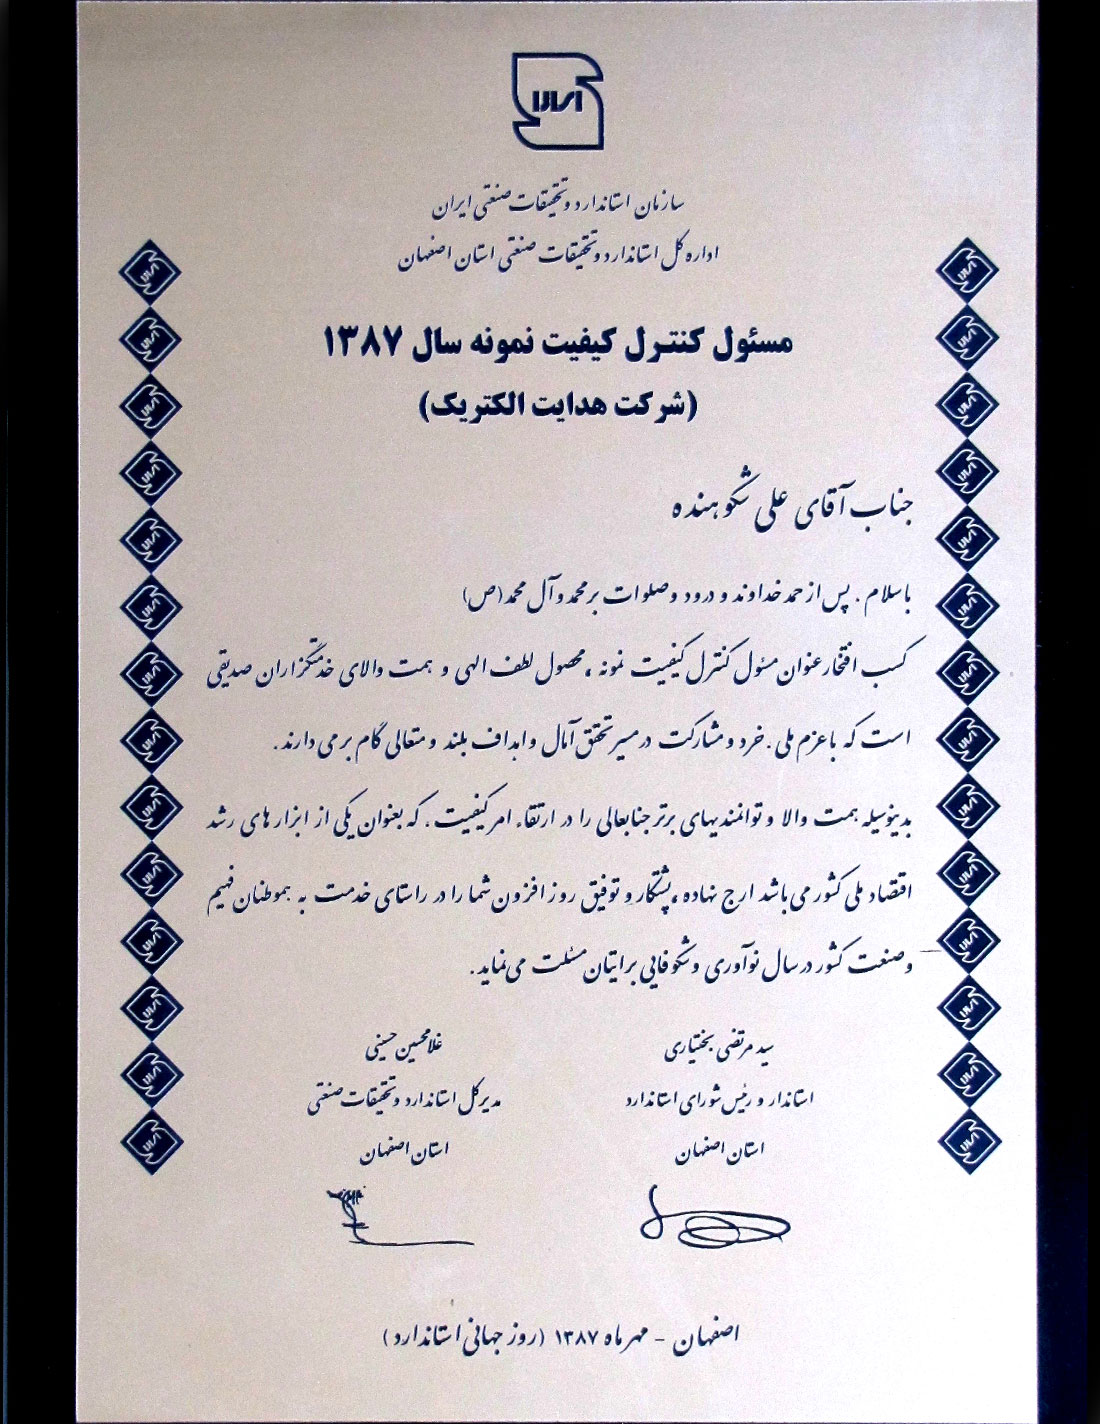 سازمان استاندارد و تحقیقات صنعتی ایران
اداره کل استاندارد و تحقیقات صنعتی استان اصفهان
مسئول کنترل کیفیت نمونه سال ۱۳۸۷
(شرکت هدایت الکتریک)
جناب آقای علی شکوهنده
باسلام . پس از حمد خداوند و درود و صلوات بر محمد و آل محمد (ص)
کسب افتخار عنوان مسئول کنترل کیفیت نمونه ، محصول لطف الهی و همت والای خدمتگزاران صدیقی
است که با عزم ملی . خرد و مشارکت در مسیر تحقق آمال و اهداف بلند و متعالی گام بر می دارند .
بدینوسیله همت والا و توانمندیهای برتر جنابعالی را در ارتقاء امر کیفیت . که بعنوان یکی از ابزار های رشد
اقتصاد ملی کشور می باشد ارج نهاده ، پشتکار و توفیق روز افزون شما را در راستای خدمت به هموطنان فهیم
و صنعت کشور در سال نوآوری و شکوفایی برایتان مسئلت می نماید .
سید مرتضی بختیاری
استاندار و رئیس شورای استاندارد
استان اصفهان
غلامحسین حسینی
مدیر کل استاندارد و تحقیقات صنعتی
استان اصفهان
اصفهان - مهر ماه ۱۳۸۷ (روز جهانی استاندارد )